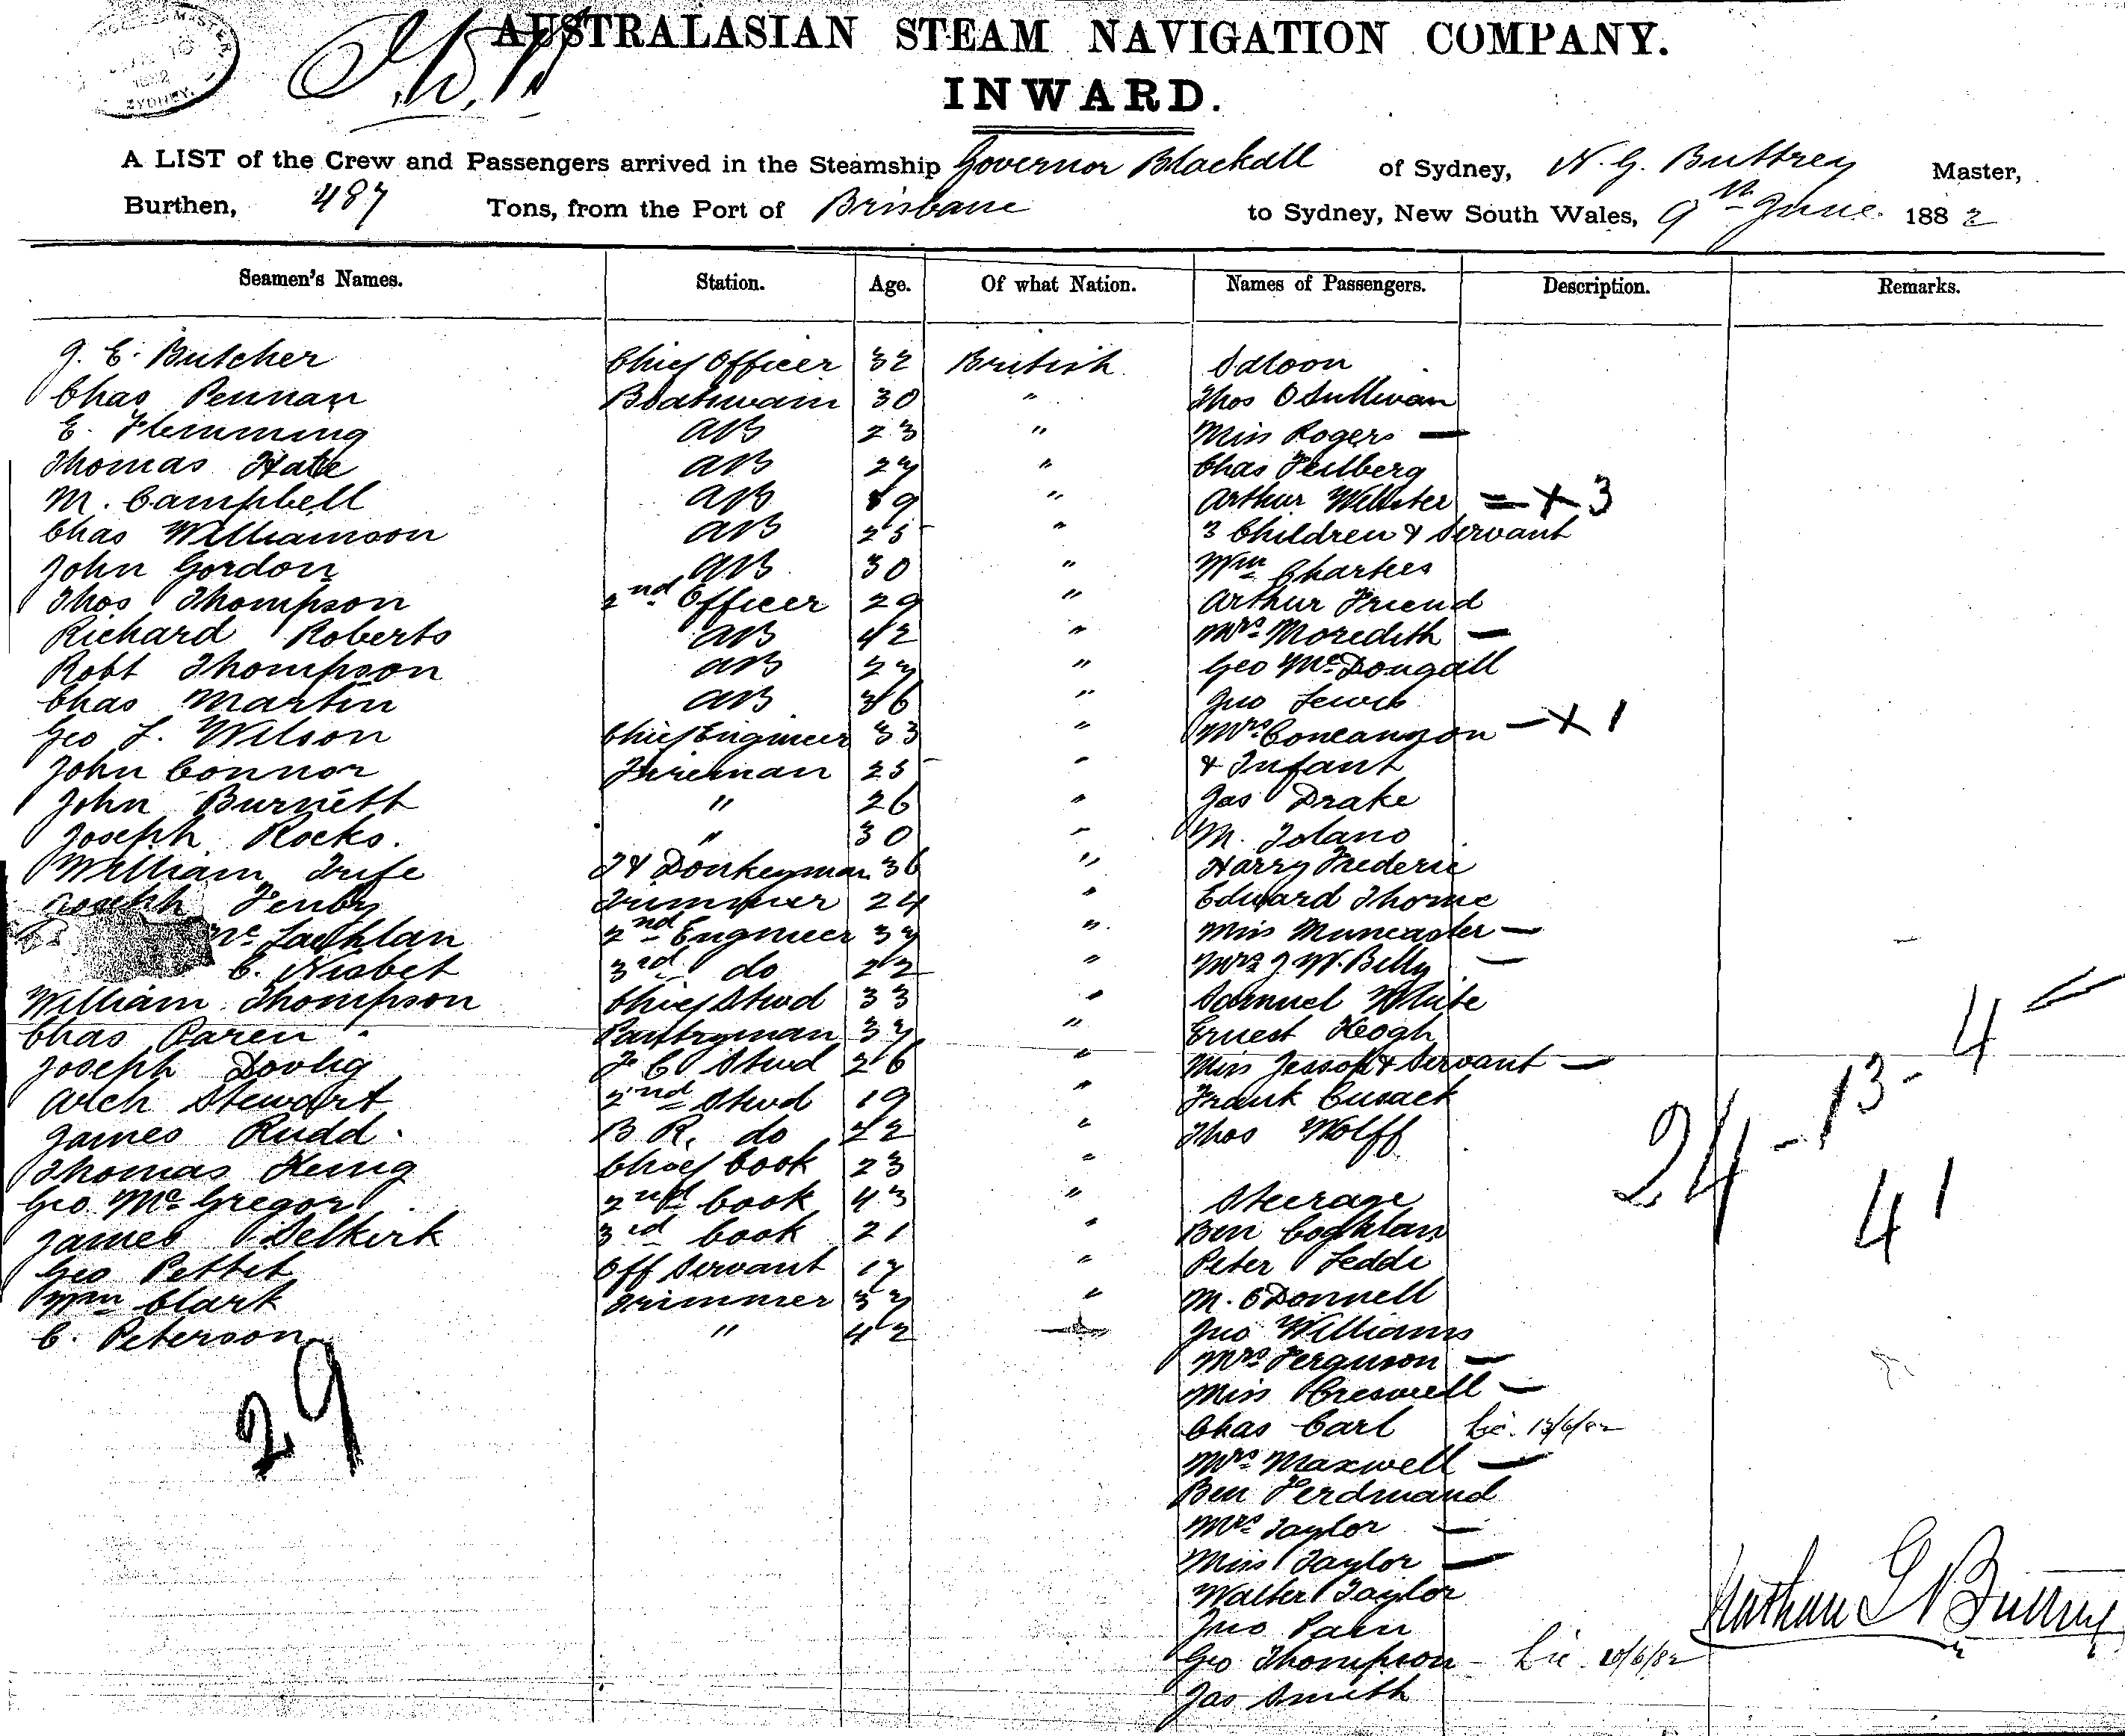 AUSTRALASIAN STEAM NAVIGATION COMPANY.
INWARD.
A LIST of the Crew and Passengers arrived in the Steamship Governor Blackall of Sydney, N. G. Buttrey Master,
Burthen, 487 Tons, from the Port of Brisbane to Sydney, New South Wales, 9th June. 1882
Seamen's Names. Station. Age. Of what Nation. Names of Passengers. Description. Remarks.
J. E. Butcher Chief Officer 32 British Saloon
Chas Pennan Boatswain 30 " Thos O Sullivan
E. Flemming AB 23 " Miss Rogers —
Thomas Hate AB 27 " Chas Feilberg
M. Campbell AB 59 " Arthur Webster = x 3
Chas Williamson AB 25 " 3 Children & Servant
John Gordon AB 30 " Wm Charters
Thos Thompson 2nd Officer 29 " Arthur Friend
Richard Roberts AB 42 " Mrs Moredith —
Robt Thompson AB 27 " Geo McDougall
Chas Martin AB 36 " Jno Lewis
Geo L. Wilson Chief Engineer 33 " Mrs Concannon — x 1
John Connor Fireman 25 " & Infant
John Burnett " 26 " Jas Drake
Joseph Rocks. " 30 " M. Tolano
William Trife F & Donkeyman 36 " Harry Frederic
Joseph Fenby Trimmer 24 " Edward Thorne
Mc Lachlan 2nd Engineer 37 " Miss Muncaster —
C. Nisbet 3rd do 22 " Mrs J. W. Billy —
William Thompson Chief Stwd 33 " Samuel White
Chas Paren Pantryman 37 " Ernest Keogh
Joseph Dovlig F C Stwd 26 " Miss Jessop & Servant —
Arch Stewart 2nd Stwd 19 " Frank Cusack
James Rudd. B R. do 22 " Thos Wolff
Thomas Keing Chief Cook 23 "
Geo McGregor 2nd Cook 43 " Steerage
James Selkirk 3rd Cook 21 " Ben Coghlan
Geo Pettit Off Servant 17 " Peter Leddi
Wm Clark Trimmer 37 " M. O Donnell
C. Peterson " 42 Jno Williams
29
Mrs Ferguson —
Miss Creswell —
Chas Carl Lic. 13/6/82
Mrs Maxwell —
Ben Ferdinand
Mrs Taylor —
Miss Taylor —
Walter Taylor
Jno Pain
Geo Thompson — Lic. 20/6/82
Jas Smith
24 - 13 - 4
41
Nathan G Buttrey